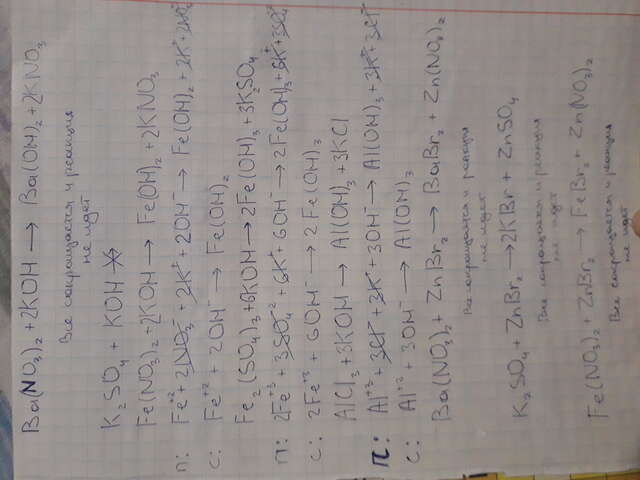 Ba(NO₃)₂ + 2KOH → Ba(OH)₂ + 2KNO₃
Все сокращается и реакция
не идет
K₂SO₄ + KOH ↛
Fe(NO₃)₂ + 2KOH → Fe(OH)₂ + 2KNO₃
п: Fe⁺² + 2NO₃⁻ + 2K⁺ + 2OH⁻ → Fe(OH)₂ + 2K⁺ + 2NO₃⁻
с: Fe⁺² + 2OH⁻ → Fe(OH)₂
Fe₂(SO₄)₃ + 6KOH → 2Fe(OH)₃ + 3K₂SO₄
п: 2Fe⁺³ + 3SO₄⁻² + 6K⁺ + 6OH⁻ → 2Fe(OH)₃ + 6K⁺ + 3SO₄⁻²
с: 2Fe⁺³ + 6OH⁻ → 2Fe(OH)₃
AlCl₃ + 3KOH → Al(OH)₃ + 3KCl
п: Al⁺³ + 3Cl⁻ + 3K⁺ + 3OH⁻ → Al(OH)₃ + 3K⁺ + 3Cl⁻
с: Al⁺³ + 3OH⁻ → Al(OH)₃
Ba(NO₃)₂ + ZnBr₂ → BaBr₂ + Zn(NO₃)₂
Все сокращается и реакция
не идет
K₂SO₄ + ZnBr₂ → 2KBr + ZnSO₄
Все сокращается и реакция
не идет
Fe(NO₃)₂ + ZnBr₂ → FeBr₂ + Zn(NO₃)₂
Все сокращается и реакция
не идет